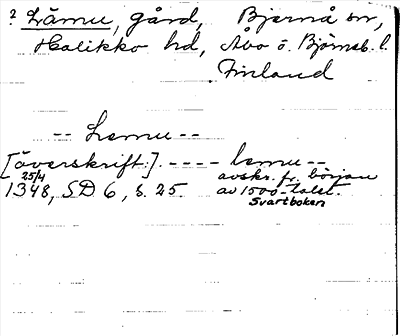 ? Lämu, gård, Bjernå sn,
Halikko hd, Åbo o. Björneb. l.
Finland
-- Lemu --
[överskrift:]. ---- lemu --
25/4
1348, SD 6, s. 25. avskr. fr. början
av 1500-talet.
Svartboken